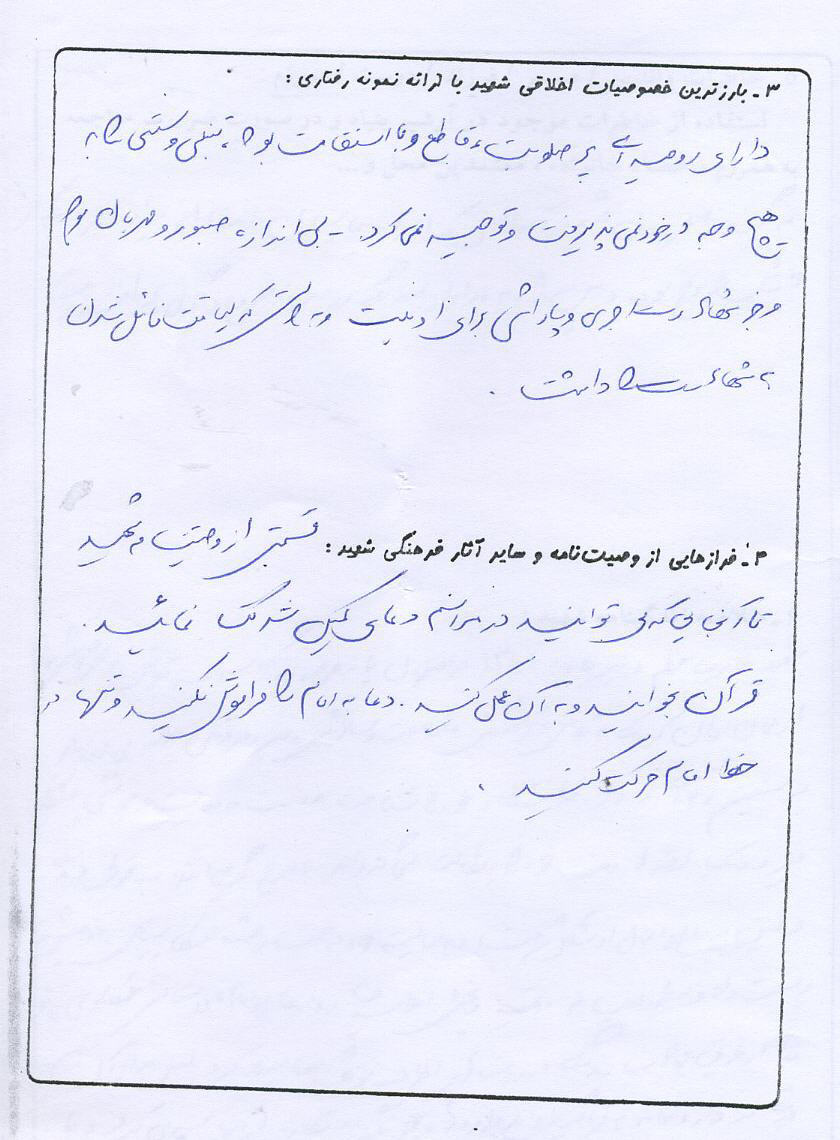 ۳ـ بارزترین خصوصیات اخلاقی شهید با ارائه نمونه رفتاری :
دارای روحیه ای پر صلابت، قاطع و با استقامت بود، تنبلی و سستی را به
هیچ وجه در خود نمی پذیرفت و توجیه نمی کرد. ـ بی اندازه صبور و مهربان بود
و جز شهادت اجری و پاداشی برای او نیست که لیاقت نائل شدن
به شهادت را داشت .
۴ـ فرازهایی از وصیت‌نامه و سایر آثار فرهنگی شهید : قسمتی از وصیت نامه شهید
تا آنجایی که می توانید در مراسم دعای کمیل شرکت نمائید .
قرآن بخوانید و به آن عمل کنید . دعا به امام را فراموش نکنید و تنها در
خط امام حرکت کنید .